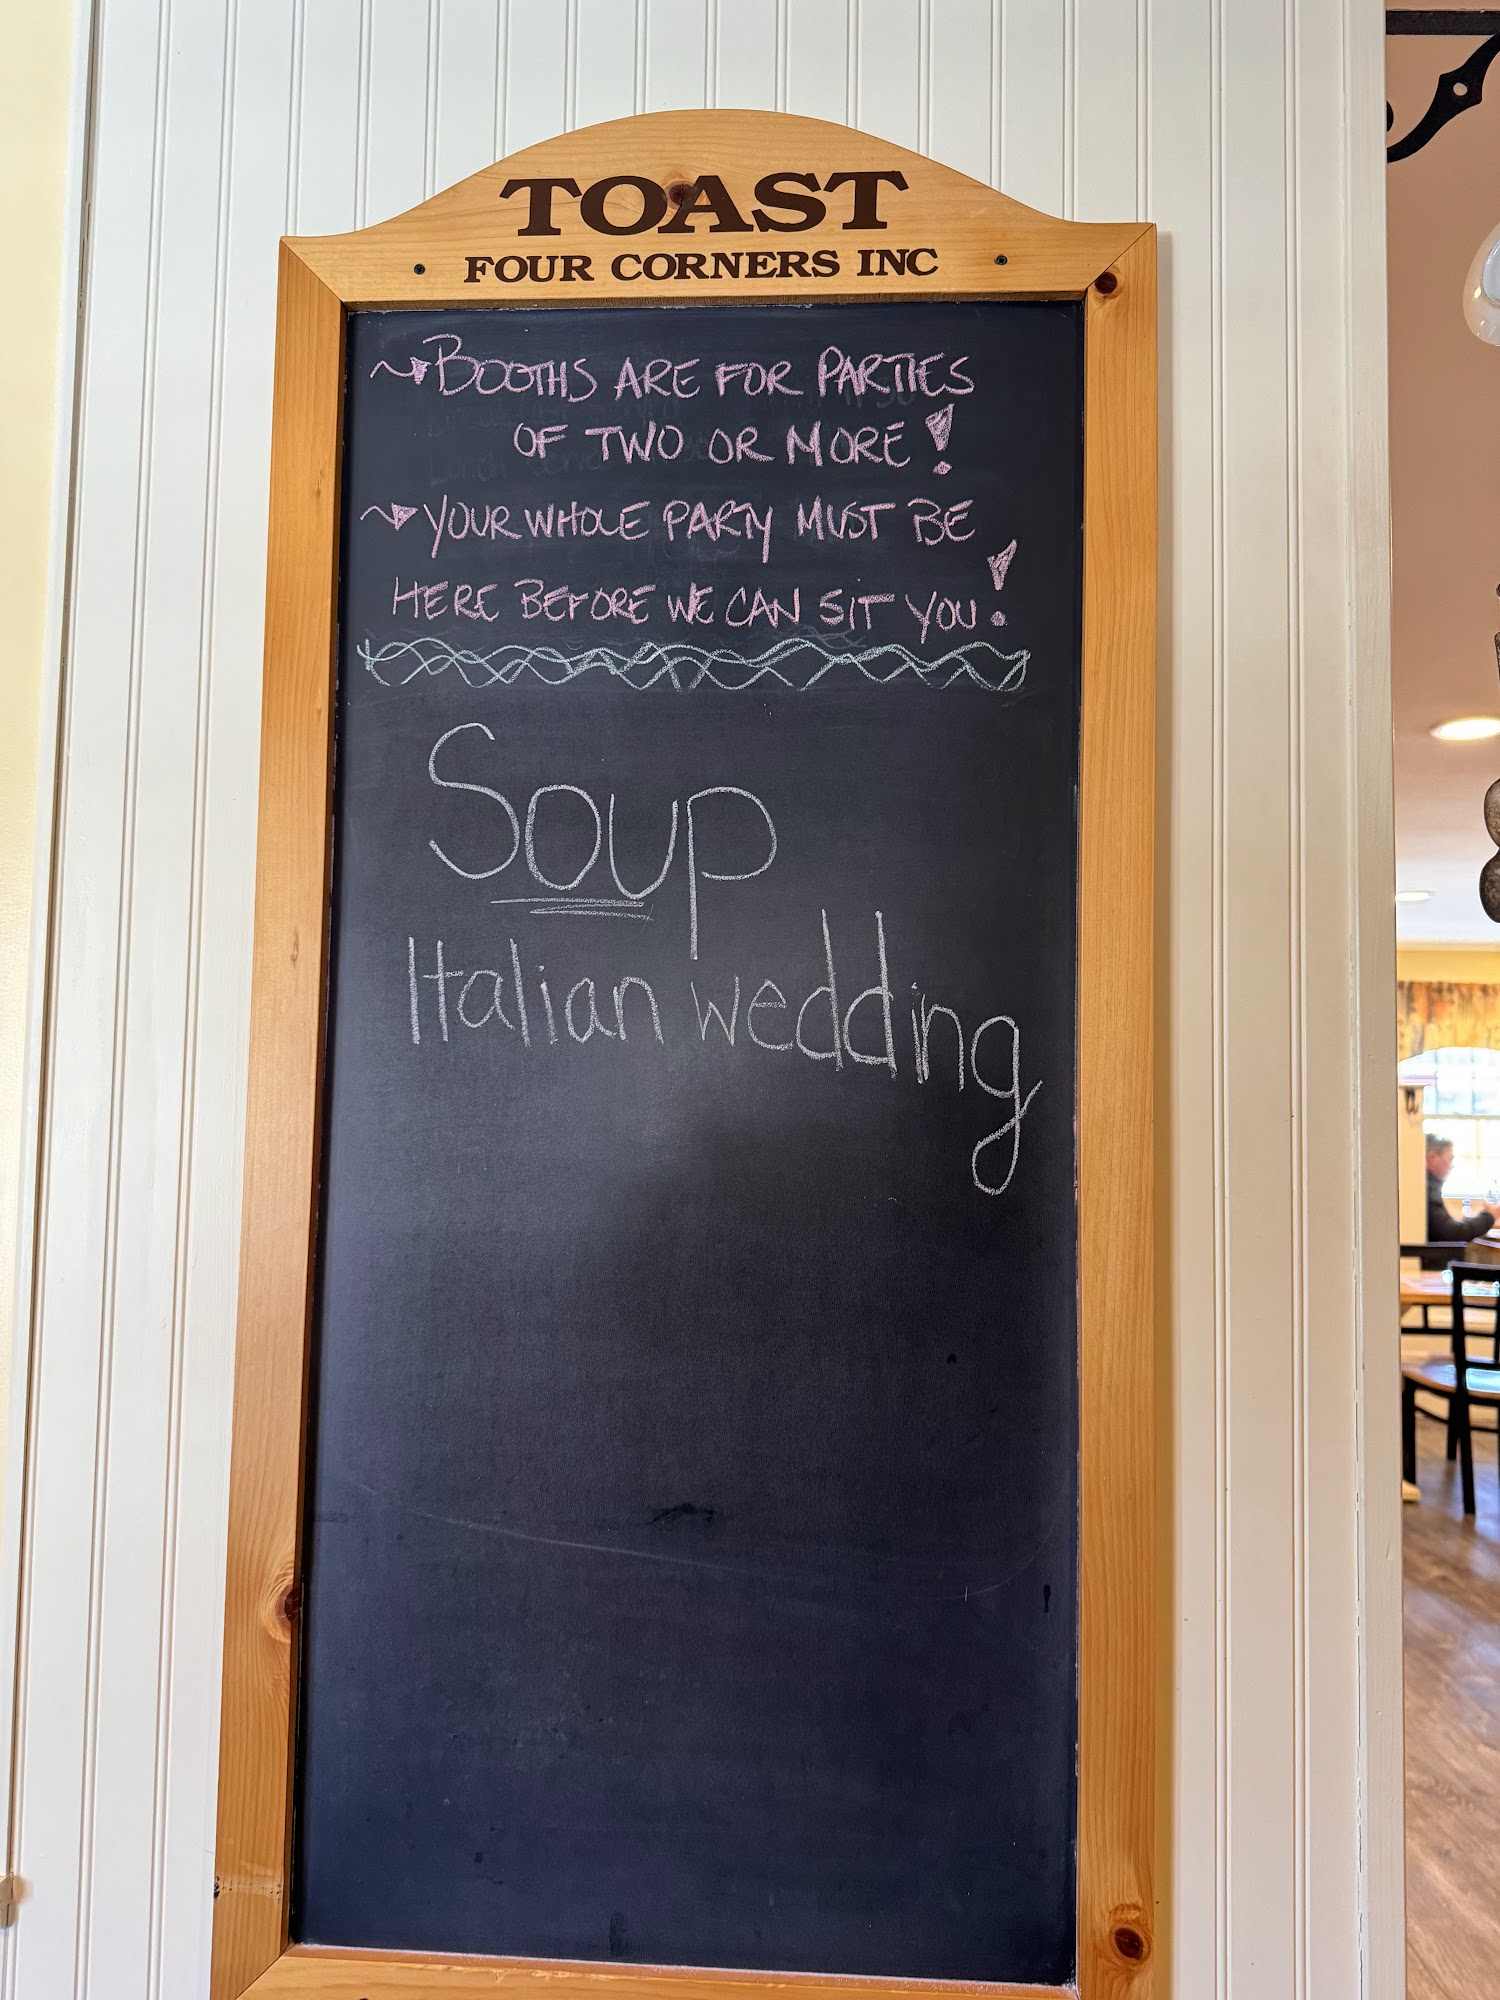 TOAST
FOUR CORNERS INC
BOOTHS ARE FOR PARTIES
OF TWO OR MORE!
YOUR WHOLE PARTY MUST BE
HERE BEFORE WE CAN SIT YOU!
Soup
Italian wedding